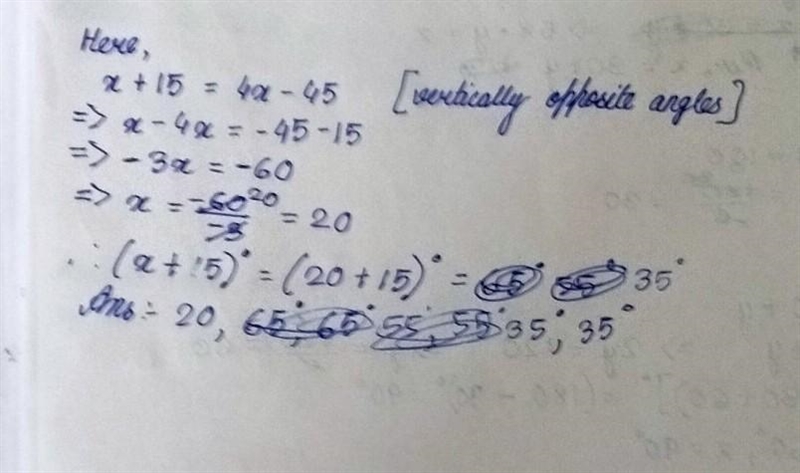 Here,
x + 15 = 4x - 45 [vertically opposite angles]
=> x - 4x = -45 - 15
=> - 3x = -60
=> x = -60 20 / -3 = 20
∴ (x + 15)° = (20 + 15)° = 65° 55° 35°
Ans :- 20, 65°, 65° 55°, 55° 35°, 35°